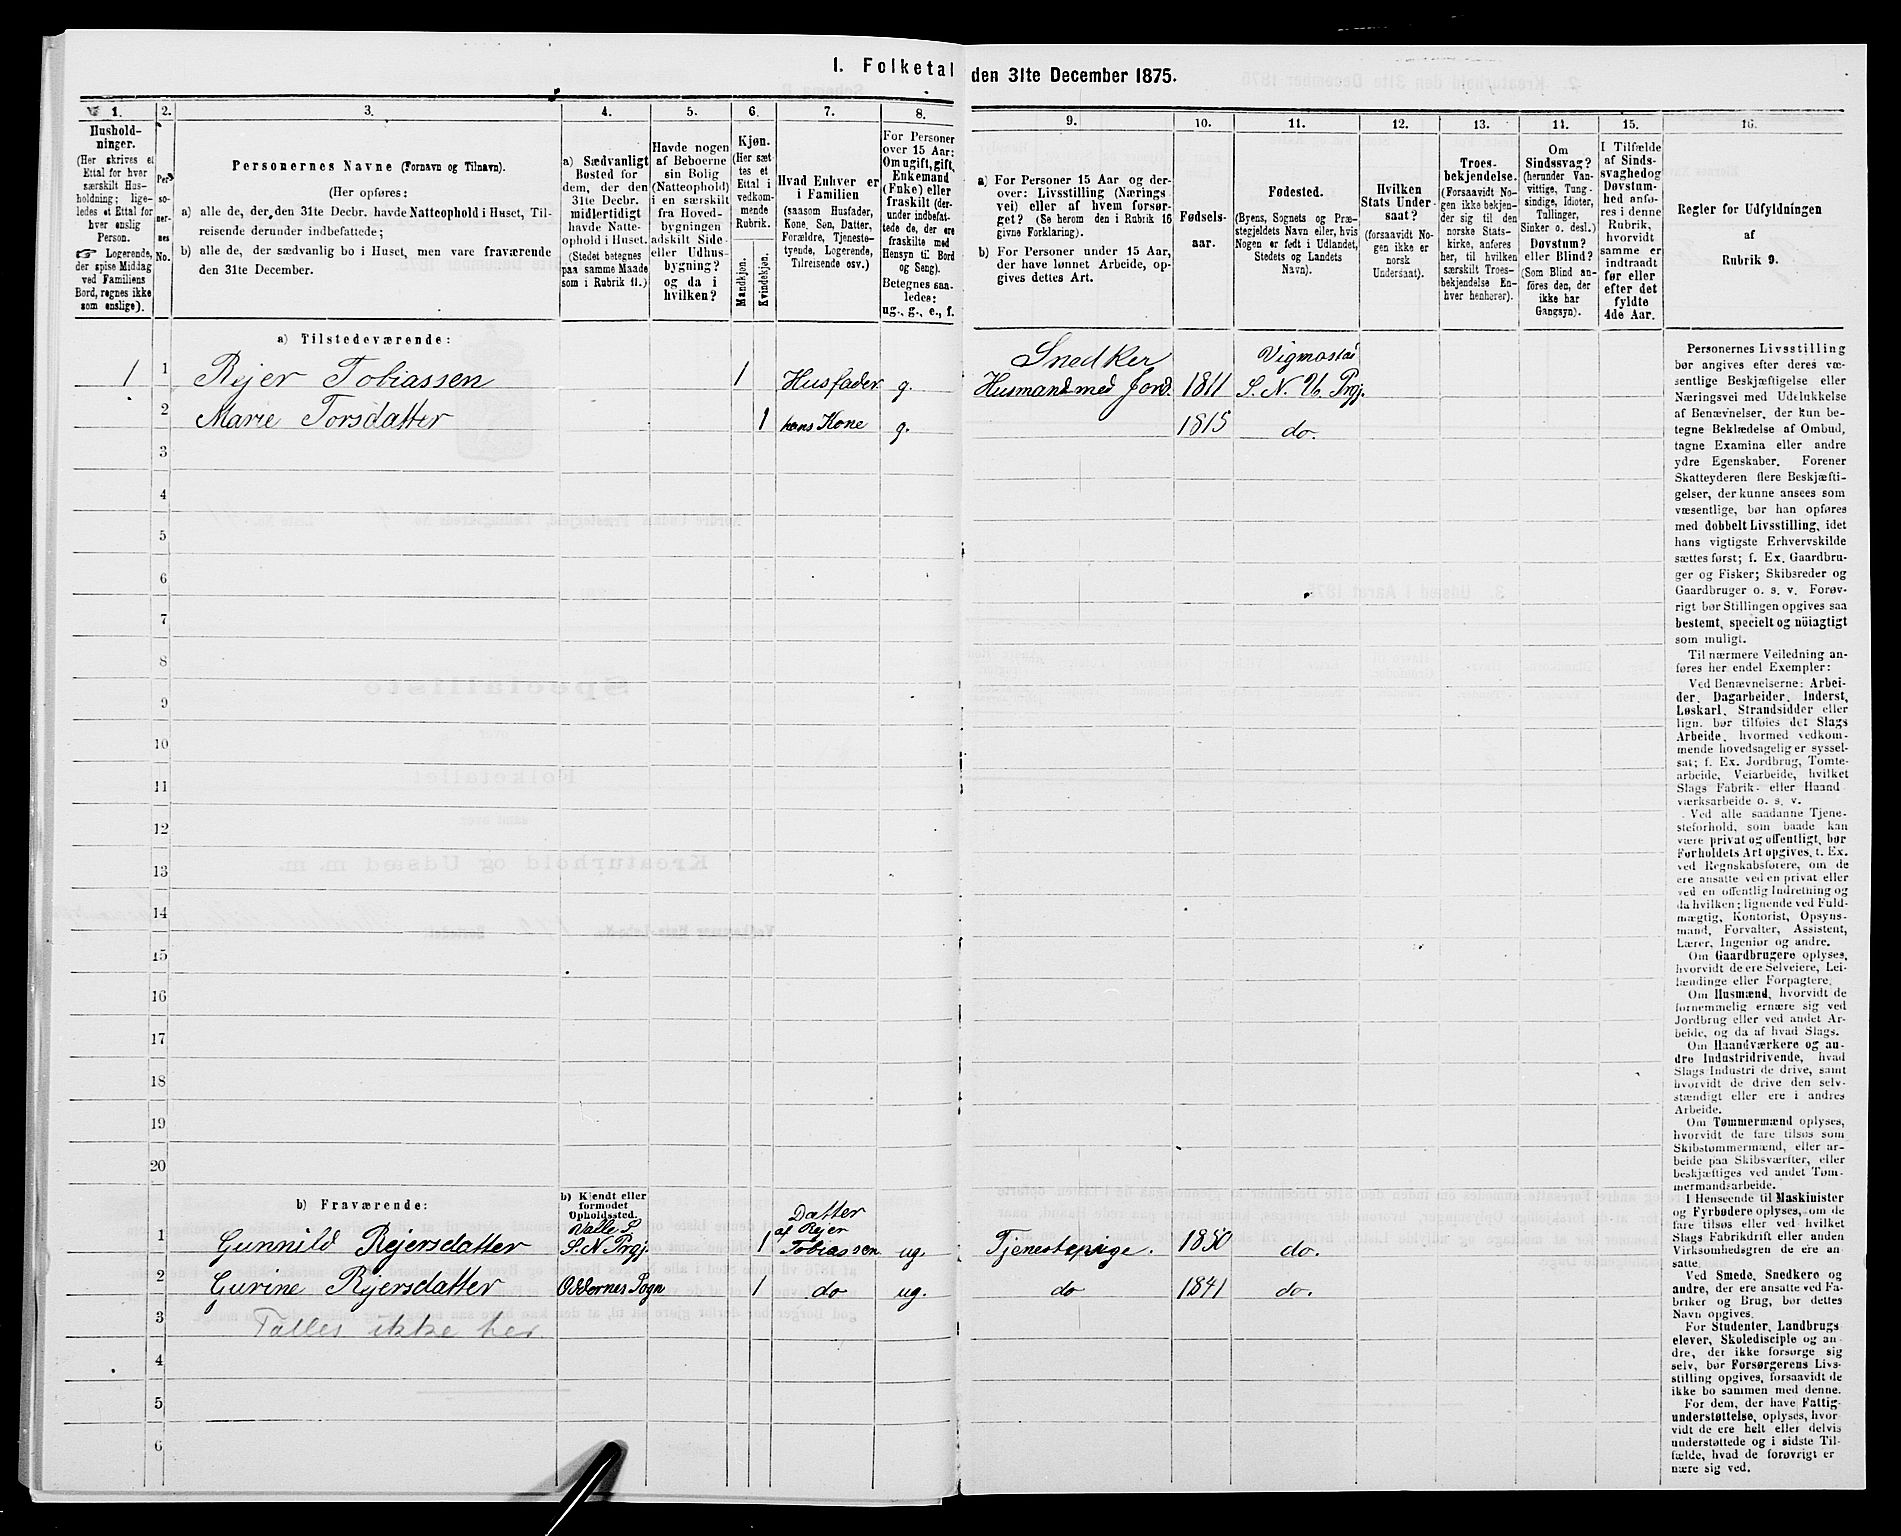 1. Folketal den 31te December 1875.
1. 2. 3. 4. 5. 6. 7. 8. 9. 10. 11. 12. 13. 14. 15. 16.
Hushold-
ninger.
(Her skrives et
Ettal for hver
særskilt Hus-
holdning; lige-
ledes et Ettal for
hver enslig
Person.
☞ Logerende,
der spise Middag
ved Familiens
Bord, regnes ikke
som enslige).
Per-
so-
ner-
nes
No.
Personernes Navne (Fornavn og Tilnavn).
(Her opføres:
a) alle de, der den 31te Decbr. havde Natteophold i Huset, Til-
reisende derunder indbefattede;
b) alle de, der sædvanlig bo i Huset, men vare fraværende
den 31te December.
a) Sædvanligt
Bosted for
dem, der den
31te Decbr.
midlertidigt
havde Natte-
ophold i Huset.
(Stedet betegnes
paa samme Maade
som i Rubrik 11.)
Havde nogen
af Beboerne
sin Bolig
(Natteophold)
i en særskilt
fra Hoved-
bygningen
adskilt Side-
eller Udhus-
bygning?
og da i
hvilken?
Kjøn.
(Her sæt-
tes et
Ettal i
vedkom-
mende
Rubrik.
Mandkjøn.
Kvindekjøn.
Hvad Enhver er
i Familien
(saasom Husfader,
Kone, Søn, Datter,
Forældre, Tjeneste-
tyende, Logerende,
Tilreisende osv.)
For Personer
over 15 Aar:
Om ugift, gift,
Enkemand
(Enke) eller
fraskilt (der-
under indbefat-
tede de, der ere
fraskilte med
Hensyn til Bord
og Seng).
Betegnes saa-
ledes:
ug., g., e., f.
a) For Personer 15 Aar og der-
over: Livsstilling (Nærings
vei) eller af hvem forsør-
get? (Se herom den i Rubrik 16
givne Forklaring).
b) For Personer under 15 Aar,
der have lønnet Arbeide, op-
gives dettes Art.
Fødsels-
aar.
Fødested.
(Byens, Sognets og Præ-
stegjeldets Navn eller, hvis
Nogen er født i Udlandet,
Stedets og Landets
Navn).
Hvilken
Stats Under-
saat?
(forsaavidt No-
gen ikke er
norsk
Undersaat).
Troes-
bekjendelse.
(Forsaavidt No-
gen ikke bekjen-
der sig til den
norske Stats-
kirke, anføres
her, til hvilken
særskilt Troes-
bekjendelse En-
hver henhører).
Om
Sindssvag?
(herunder Van-
vittige, Tung-
sindige, Idioter,
Tullinger,
Sinker o. desl.)
Døvstum?
eller Blind?
(Som Blind an-
føres den, der
ikke har
Gangsyn).
I Tilfælde
af Sinds-
svaghed og
Døvstum-
hed anfø-
res i denne
Rubrik,
hvorvidt
samme er
indtraadt
før eller
efter det
fyldte
4de Aar.
Regler for Udfyldningen
af
Rubrik 9.
a) Tilstedeværende:
Snedker Vigmostad
1 1 Rejer Tobiassen 1 Husfader g. Husmand med Jord. 1811 S. N. U. Prgj.
2 Marie Torsdatter 1 hans Kone g. 1815 do.
3
4
5
6
7
8
9
10
11
12
13
14
15
16
17
18
19
20
b) Fraværende:
b) Kjendt eller
formodet
Opholdssted.
Valle S. Datter af Rejer
1 Gunnild Rejersdatter S. N. Prgj. 1 Tobiassen ug. Tjenestepige. 1850 do.
2 Gurine Rejersdatter Oddernes Sogn 1 do ug. do 1841 do.
3 Tælles ikke her
4
5
6
Personernes Livsstilling
bør angives efter deres væ-
sentlige Beskjæftigelse eller
Næringsvei med Udelukkelse
af Benævnelser, der kun be-
tegne Beklædelse af Ombud,
tagne Examina eller andre
ydre Egenskaber. Forener
Skatteyderen flere Beskjæfti-
gelser, der kunne ansees som
væsentlige, bør han opføres
med dobbelt Livsstilling, idet
hans vigtigste Erhvervskilde
sættes først; f. Ex. Gaardbru-
ger og Fisker; Skibsreder og
Gaardbruger o. s. v. Forøv-
rigt bør Stillingen opgives saa
bestemt, specielt og nöiagtigt
som muligt.
Til nærmere Veiledning an-
føres her endel Exempler:
Ved Benævnelserne: Arbei-
der, Dagarbeider, Inderst,
Løskarl, Strandsidder eller
lign. bør tilføies det Slags
Arbeide, hvormed vedkom-
mende hovedsagelig er syssel-
sat; f. Ex. Jordbrug, Tomte-
arbeide, Veiarbeide, hvilket
Slags Fabrik- eller Haand
værksarbeide o. s. v.
Ved alle saadanne Tjene-
steforhold, som baade kan
være privat og offentligt, bør
Forholdets Art opgives, f. Ex.
ved Regnskabsførere, om de
ere ansatte ved en privat eller
ved en offentlig Indretning og
da hvilken; lignende ved Fuld-
mægtig, Kontorist, Opsyns-
mand, Forvalter, Assistent,
Lærer, Ingeniør og andre.
Om Gaardbrugere oplyses,
hvorvidt de ere Selveiere, Lei-
lændinge eller Forpagtere.
Om Husmænd, hvorvidt de
fornemmelig ernære sig ved
Jordbrug eller ved andet Ar-
beide, og da af hvad Slags.
Om Haandværkere og an-
dre Industridrivende, hvad
Slags Industri de drive, samt
hvorvidt de drive den selv-
stændigt eller ere i andres
Arbeide.
Om Tømmermænd oplyses,
hvorvidt de fare tilsøs som
Skibstømmermænd, eller ar-
beide paa Skibsværfter, eller
beskjæftiges ved andet Tøm-
mermandsarbeide.
I Henseende til Maskinister
og Fyrbødere oplyses, om de
fare tilsøs eller ved hvilket
Slags Fabrikdrift eller anden
Virksomhedsgren de ere an-
satte.
Ved Smede, Snedkere og
andre, der ere ansatte ved Fa-
briker og Brug, bør dettes
Navn opgives.
For Studenter, Landbrugs
elever, Skoledisciple og an-
dre, der ikke forsørge sig
selv, bør Forsørgerens Livs-
stilling opgives, forsaavidt de
ikke bo sammen med denne.
For dem, der have Fattig-
understøttelse, oplyses, hvor-
vidt de ere helt eller delvis
understøttede og i sidste Til-
fælde, hvad de forøvrigt er
nære sig ved.